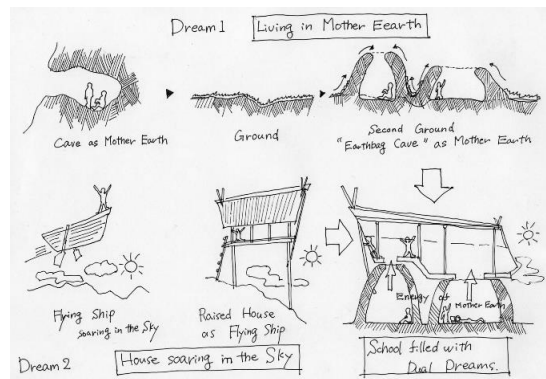 Dream 1
Living in Mother Eearth
Cave as Mother Earth
Ground
Second Ground
"Earthbag Cave" as Mother Earth
Flying Ship
soaring in the Sky
Raised House
as Flying Ship
Energy of Mother Earth
Dream 2
House soaring in the Sky
School filled with
Dual Dreams.